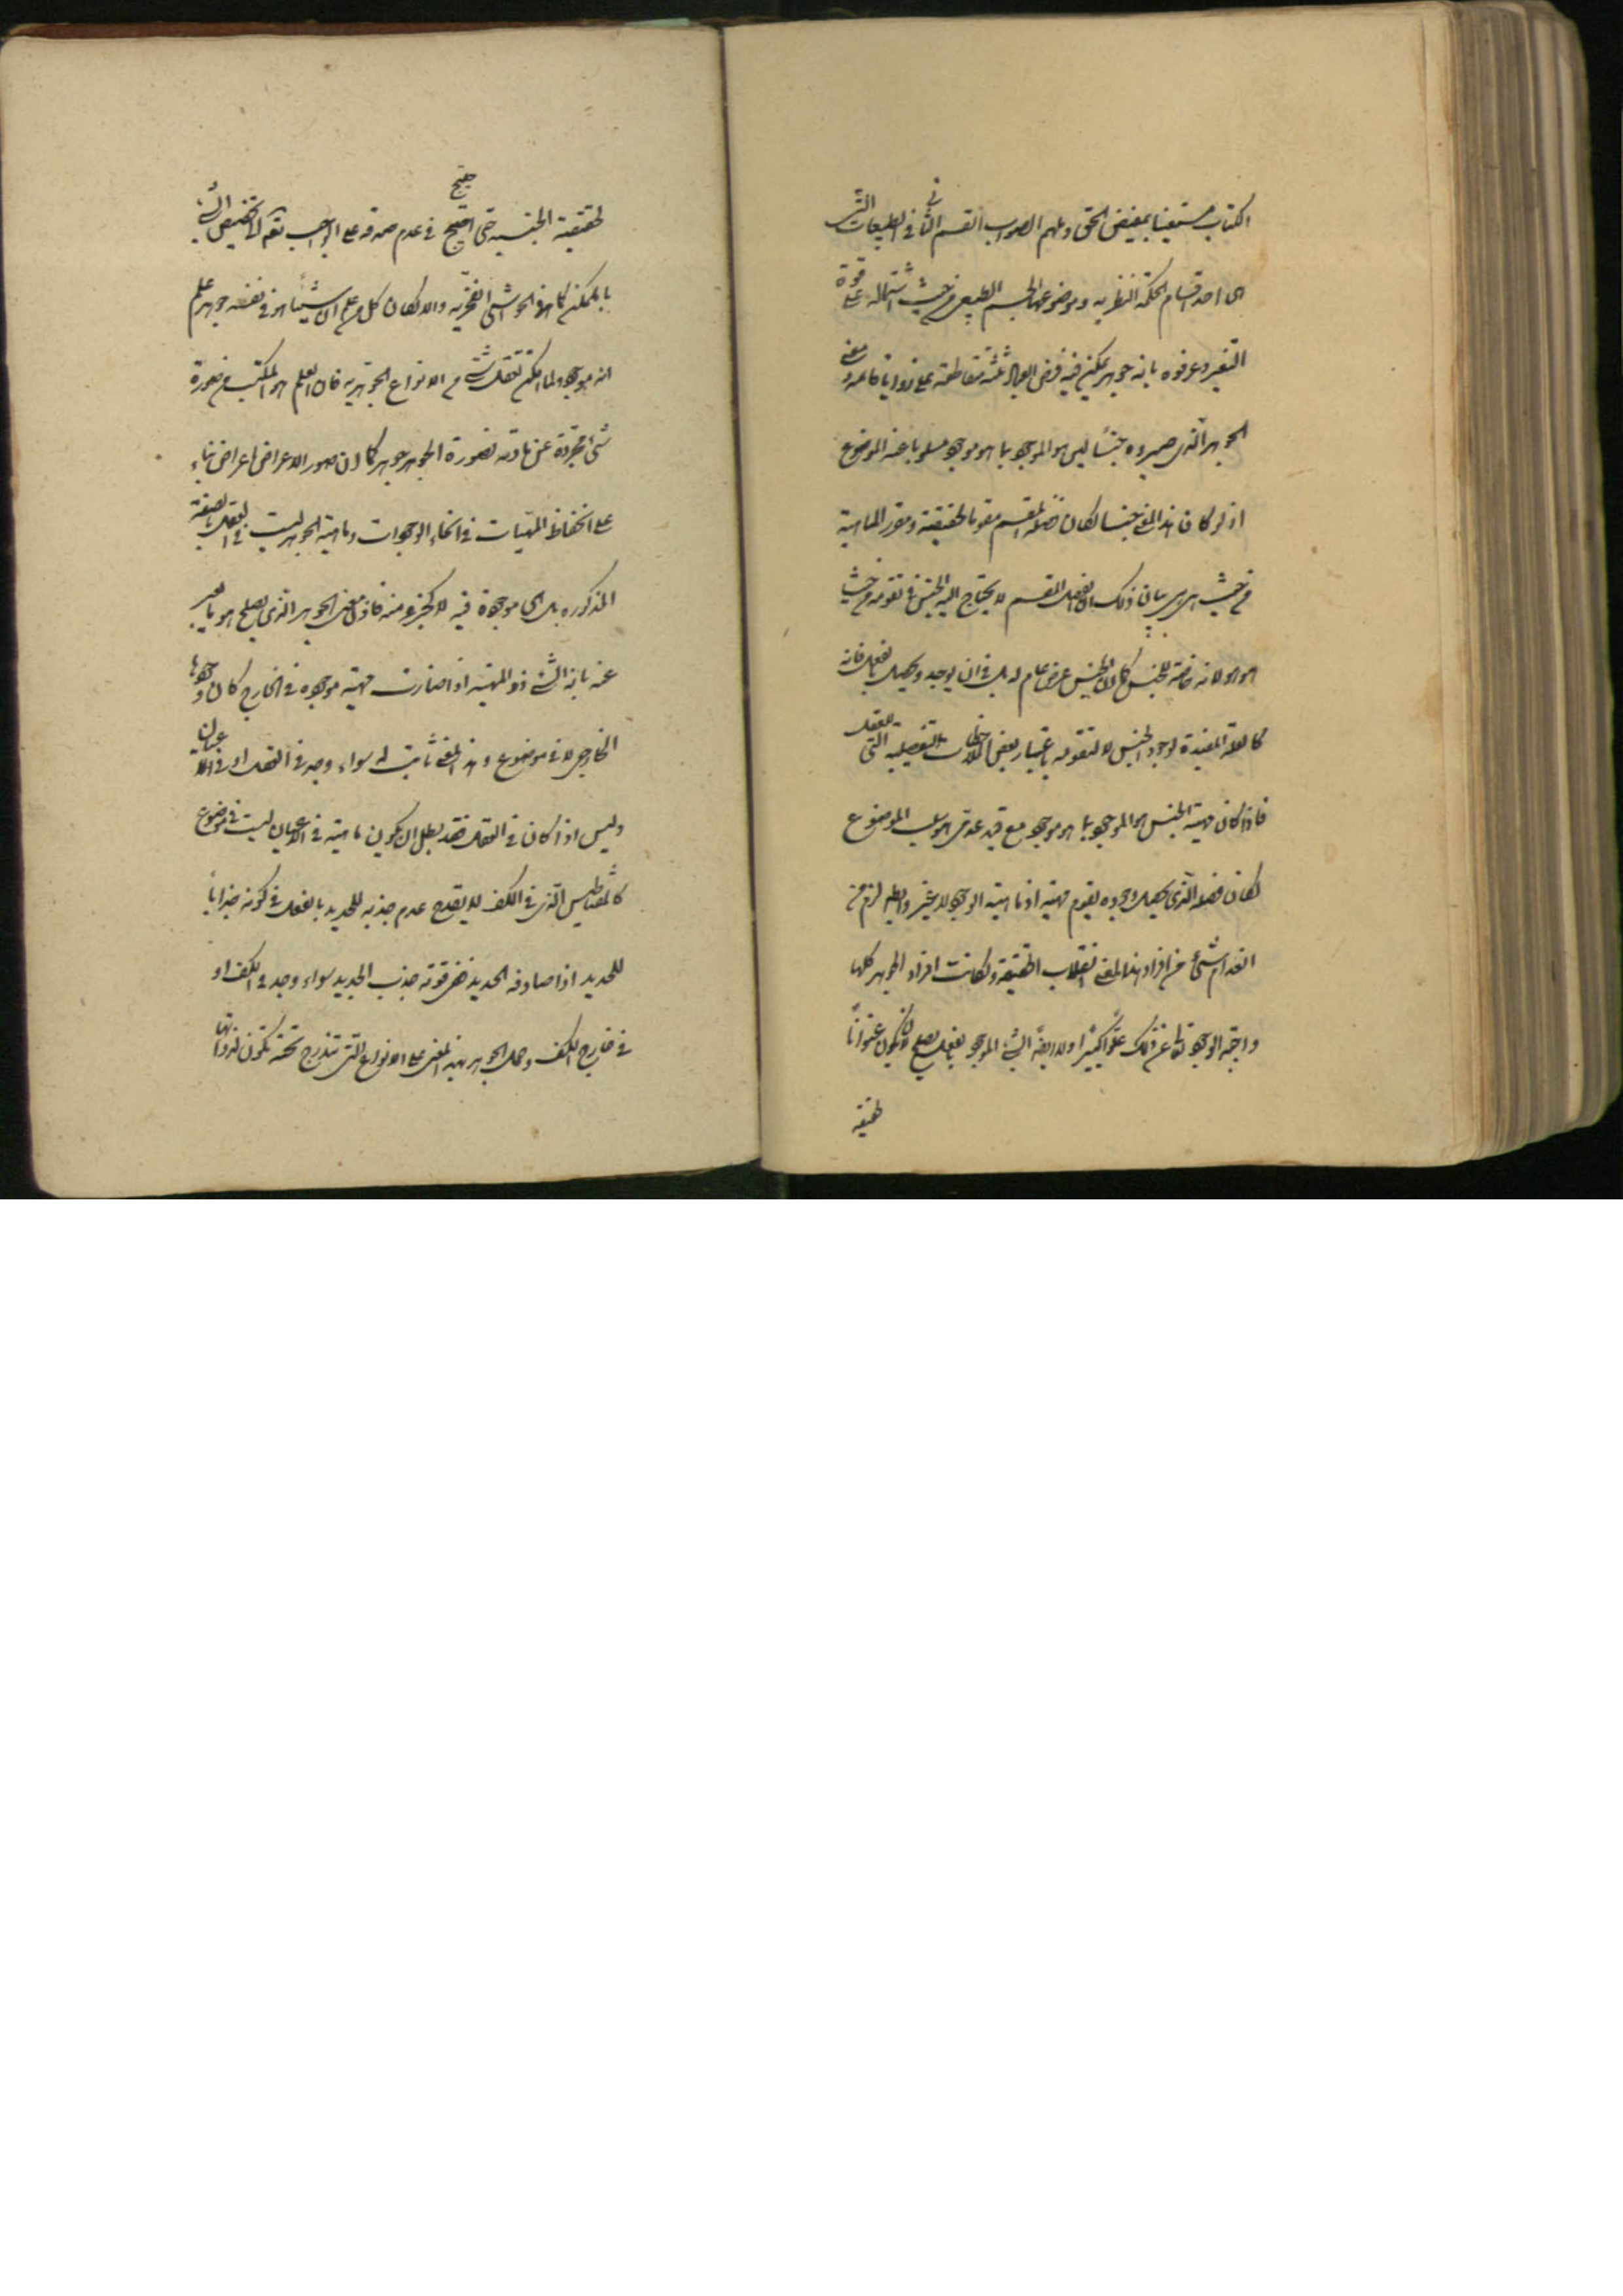 الكتاب مستعينا بمفيض الحق وملهم الصواب القسم الثاني في الطبيعيات التي
هي احد اقسام الحكمة النظرية وموضوعها الجسم الطبيعي من حيث اشتماله على قوة
التغير وعرفوه بانه جوهر يمكن فيه فرض ابعاد ثلثة متقاطعة على زوايا قائمة ومعنى
الجوهر الذي صيروه جنسا ليس هو الموجود بما هو موجود مسلوبا عنه الموضوع
اذ لو كان هذا المعنى جنسا لكان فصله المقسم مقوما لحقيقته ومقرر الماهية
من حيث هي هي بيان ذلك ان الفصل المقسم لا يحتاج اليه الجنس في تقومه من حيث
هو هو لانه خاصة للجنس كما ان الجنس عرض عام له بل في ان يوجد ويحصل بالفعل فانه
كالعلة المفيدة لوجود الجنس لا لتقومه باعتبار بعض الملاحظات التفصيلية التي للعقل
فاذا كان مهية الجنس هو الموجود بما هو موجود مع قيد عدمي هو سلب الموضوع
لكان فصله الذي يحصل وجوده يقوم مهيته اذ ماهيته الوجود لا غير وايضا لزم من
انعدام شئ من افراد هذا المعنى انقلاب الحقيقة ولكانت افراد الجوهر كلها
واجبة الوجود تعالى عن ذلك علوا كبيرا ولا ايضا الشئ الموجود بالفعل يصلح لان يكون عنوانا
لحقيقة
لحقيقته الجنسية حتى احتيج في عدم صدقه على الواجب تعالى الى تخصيص الشئ
بالممكن كما في الحواشي الفخرية والا لكان كل من علم ان شيئا هو في نفسه جوهر علم
انه موجود ولما امكن تعقل شئ من الانواع الجوهرية فان العلم هو المكتسب من صورة
شئ مجردة عن مادته فصورة الجوهر جوهر كما ان صور الاعراض اعراض بناء
على انحفاظ المهيات في انحاء الوجودات وماهية الجوهر ليست في العقل بالصفة
المذكورة بل هي موجودة فيه لا كجزء منه فاذن معنى الجوهر الذي يصلح هو بالتعبير
عنه بانه الشئ ذو المهية اذا صارت مهيته موجودة في الخارج كان وجودها
الخارجي لا في موضوع وهذا المعنى ثابت له سواء وجد في العقل او في الاعيان
وليس اذا كان في العقل فقد بطل ان يكون ماهيته في الاعيان ليست في موضوع
كالمغناطيس الذي في الكف لا يقدح عدم جذبه للحديد بالفعل في كونه جذابا
للحديد اذا صادفه الحديد ففي قوته جذب الحديد سواء وجد في الكف او
في خارج الكف وحمل الجوهر بهذا المعنى على الانواع التي تندرج تحته يكون لذواتها